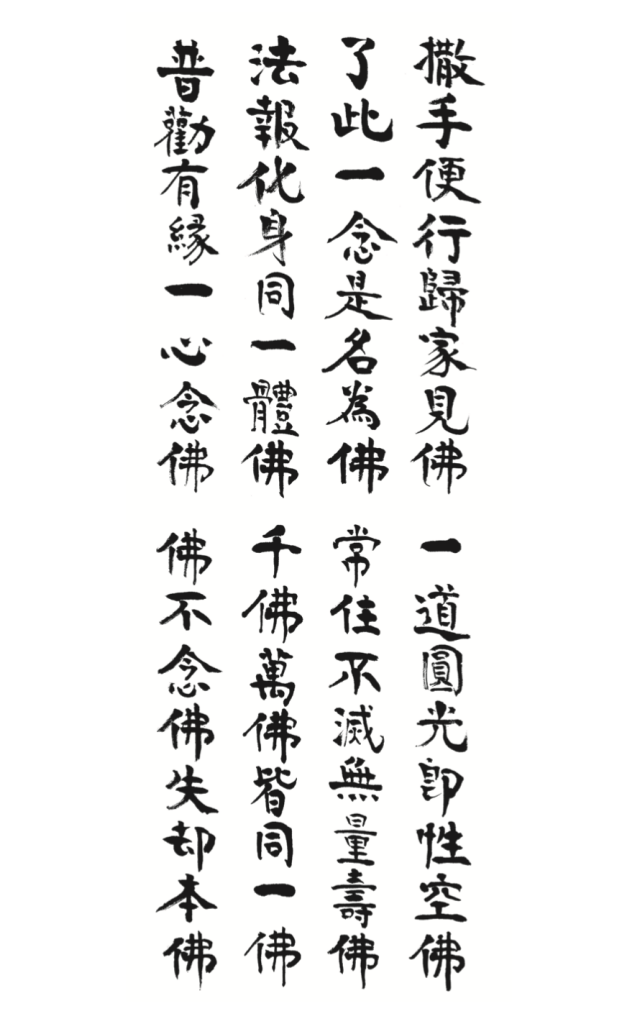 撒手便行歸家見佛
一道圓光即性空佛
了此一念是名為佛
常住不滅無量壽佛
法報化身同一體佛
千佛萬佛皆同一佛
普勸有緣一心念佛
佛不念佛失却本佛